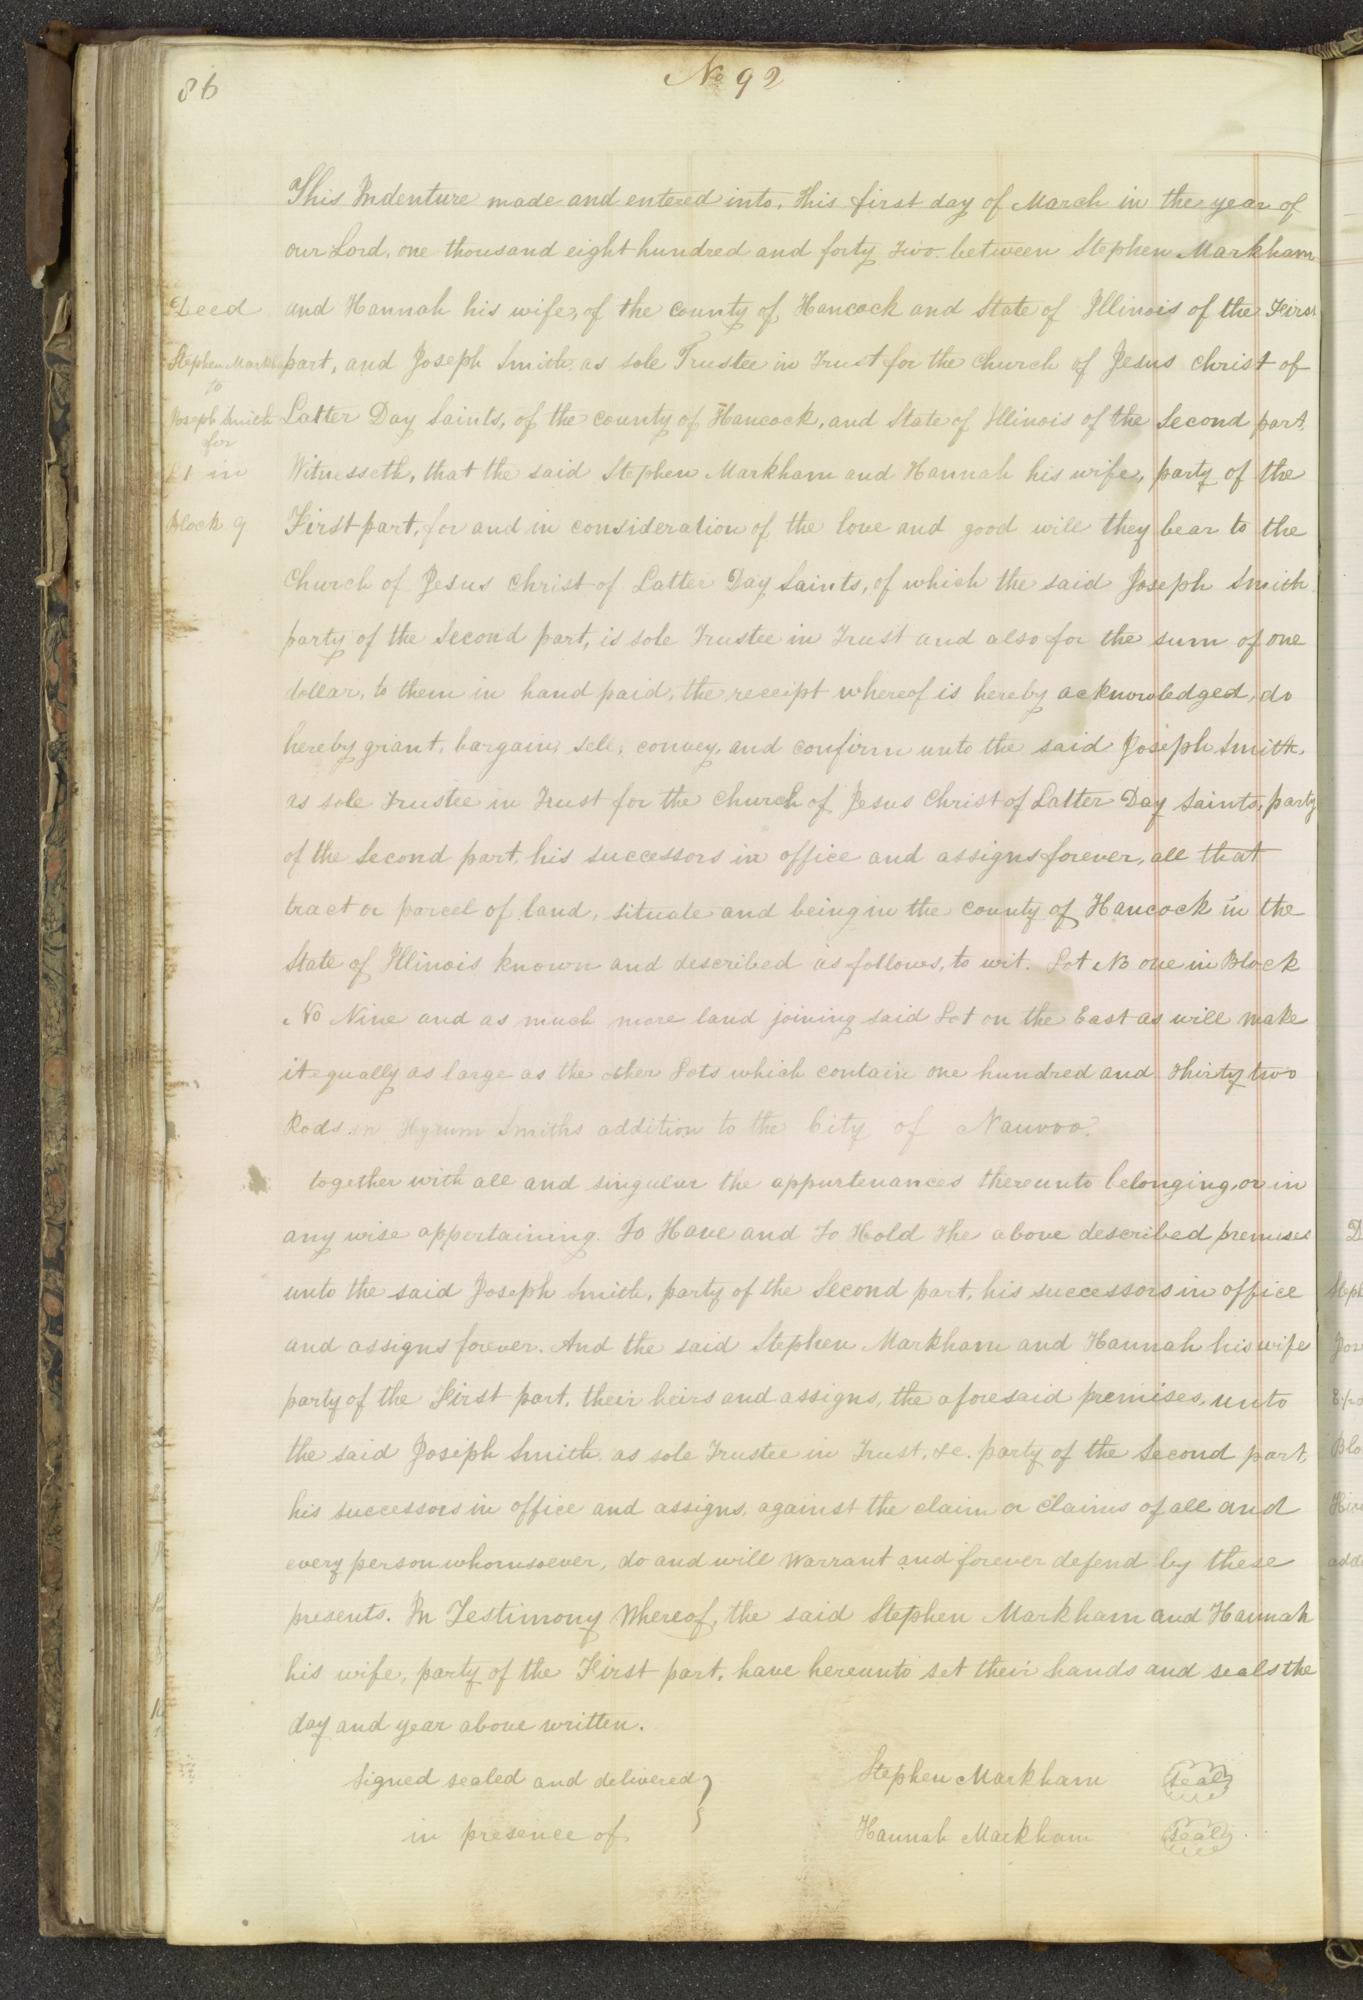 86
No 92
This Indenture made and entered into, this first day of March in the year of
our Lord, one thousand eight hundred and forty two. between Stephen Markham
Deed
and Hannah his wife, of the county of Hancock and State of Illinois of the First
Stephen Markh
part, and Joseph Smith as sole Trustee in Trust for the Church of Jesus Christ of
to
Joseph Smith
Latter Day Saints, of the county of Hancock, and State of Illinois of the Second part.
for
L 1 in
Witnesseth, that the said Stephen Markham and Hannah his wife, party of the
Block 9
First part, for and in consideration of the love and good will they bear to the
Church of Jesus Christ of Latter Day Saints, of which the said Joseph Smith
party of the Second part, is sole Trustee in Trust and also for the sum of one
dollar, to them in hand paid, the receipt whereof is hereby acknowledged, do
hereby grant, bargain, sell, convey, and confirm unto the said Joseph Smith,
as sole Trustee in Trust for the Church of Jesus Christ of Latter Day Saints, party
of the Second part, his successors in office and assigns forever, all that
tract or parcel of land, situate and being in the county of Hancock in the
State of Illinois known and described as follows, to wit. Lot No one in Block
No Nine and as much more land joining said Lot on the East as will make
it equally as large as the other Lots which contain one hundred and thirty two
Rods in Hyrum Smiths addition to the City of Nauvoo.
together with all and singular the appurtenances thereunto belonging, or in
any wise appertaining. To Have and To Hold the above described premises
unto the said Joseph Smith, party of the Second part, his successors in office
and assigns forever. And the said Stephen Markham and Hannah his wife
party of the First part, their heirs and assigns, the aforesaid premises, unto
the said Joseph Smith as sole Trustee in Trust, &c. party of the Second part,
his successors in office and assigns, against the claim or claims of all and
every person whomsoever, do and will Warrant and forever defend by these
presents. In Testimony Whereof, the said Stephen Markham and Hannah
his wife, party of the First part, have hereunto set their hands and seals the
day and year above written.
Signed sealed and delivered
in presence of
Stephen Markham seal
Hannah Markham seal